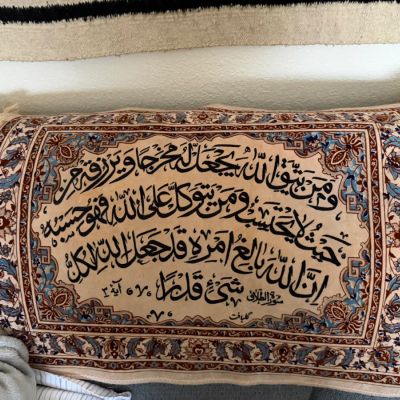 ومن يتق الله يجعل له مخرجا ويرزقه من
حيث لا يحتسب ومن يتوكل على الله فهو حسبه
ان الله بالغ امره قد جعل الله لكل
شئ قدرا
سورة الطلاق آية ٣